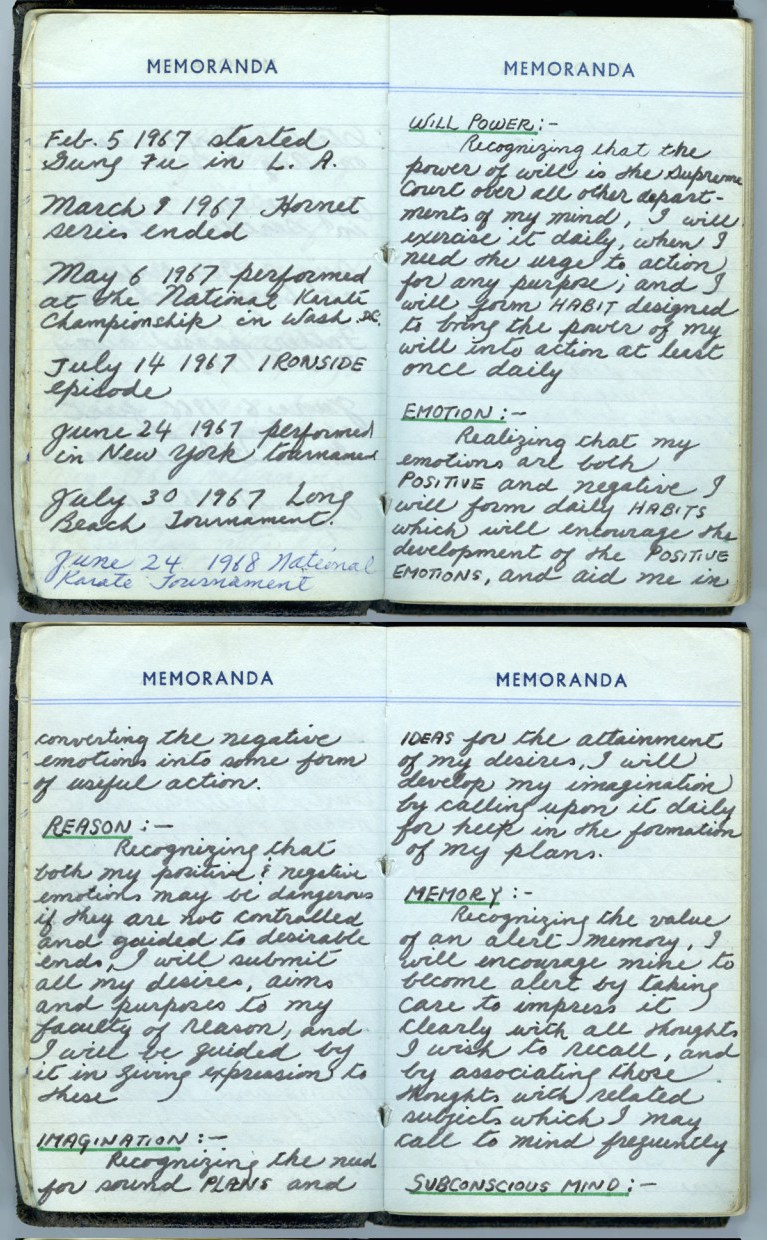 MEMORANDA
Feb. 5 1967 started
Gung Fu in L. A.
March 9 1967 Hornet
series ended
May 6 1967 performed
at the National Karate
Championship in Wash. DC.
July 14 1967 IRONSIDE
episode
June 24 1967 performed
in New York tournament
July 30 1967 Long
Beach Tournament.
June 24 1968 National
Karate Tournament
MEMORANDA
WILL POWER:-
Recognizing that the
power of will is the Supreme
Court over all other depart-
ments of my mind, I will
exercise it daily, when I
need the urge to action
for any purpose; and I
will form HABIT designed
to bring the power of my
will into action at least
once daily
EMOTION:-
Realizing that my
emotions are both
POSITIVE and negative I
will form daily HABITS
which will encourage the
development of the POSITIVE
EMOTIONS, and aid me in
MEMORANDA
converting the negative
emotions into some form
of useful action.
REASON:-
Recognizing that
both my positive & negative
emotions may be dangerous
if they are not controlled
and guided to desirable
ends, I will submit
all my desires, aims
and purposes to my
faculty of reason, and
I will be guided by
it in giving expression to
these
IMAGINATION:-
Recognizing the need
for sound PLANS and
MEMORANDA
IDEAS for the attainment
of my desires, I will
develop my imagination
by calling upon it daily
for help in the formation
of my plans.
MEMORY:-
Recognizing the value
of an alert memory, I
will encourage mine to
become alert by taking
care to impress it
clearly with all thoughts
I wish to recall, and
by associating those
thoughts with related
subjects which I may
call to mind frequently
SUBCONSCIOUS MIND:-